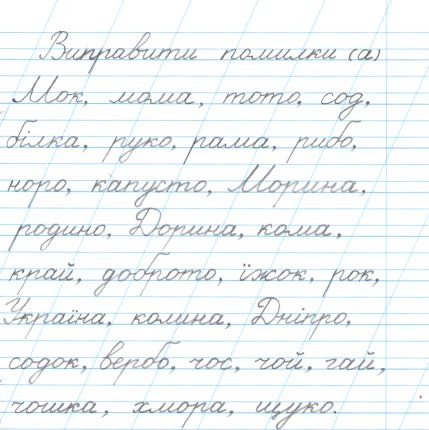 Виправити помилки (а)
Мок, мома, тото, сод,
білка, руко, рама, рибо,
норо, капусто, Морина,
родино, Дорина, кома,
край, доброто, їжок, рок,
Україна, колина, Дніпро,
содок, вербо, чос, чой, гай,
чошка, хмора, щуко.